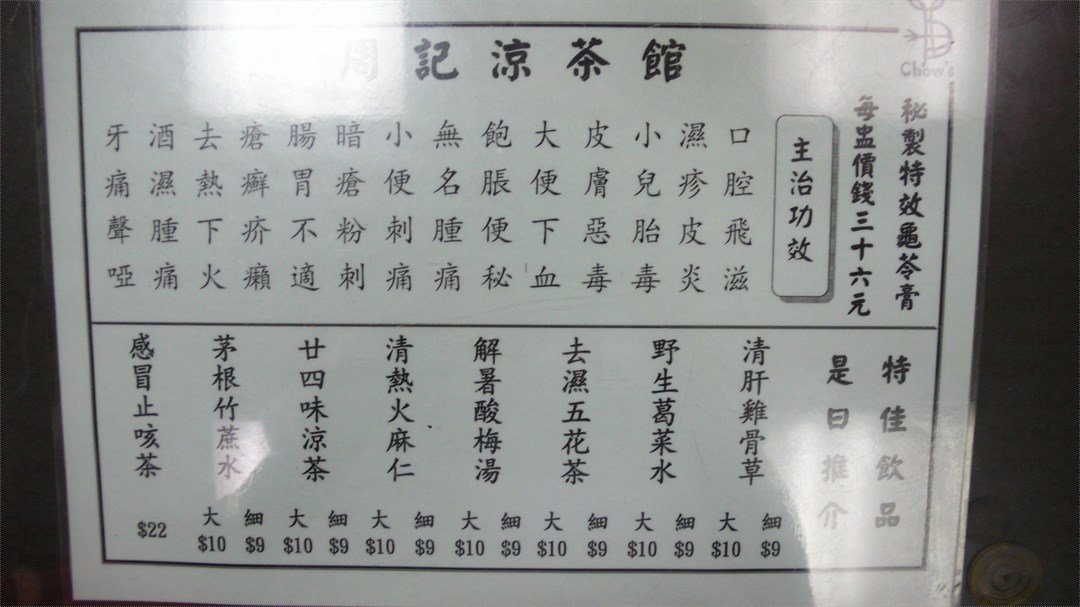 周記涼茶館
Chow's
秘製特效龜苓膏
每盅價錢三十六元
主治功效
口腔飛滋
濕疹皮炎
小兒胎毒
皮膚惡毒
大便下血
飽脹便秘
無名腫痛
小便刺痛
暗瘡粉刺
腸胃不適
瘡癬疥癩
去熱下火
酒濕腫痛
牙痛聲啞
特佳飲品
是日推介
清肝雞骨草
細 $9
大 $10
野生葛菜水
細 $9
大 $10
去濕五花茶
細 $9
大 $10
解暑酸梅湯
細 $9
大 $10
清熱火麻仁
細 $9
大 $10
廿四味涼茶
細 $9
大 $10
茅根竹蔗水
細 $9
大 $10
感冒止咳茶
$22